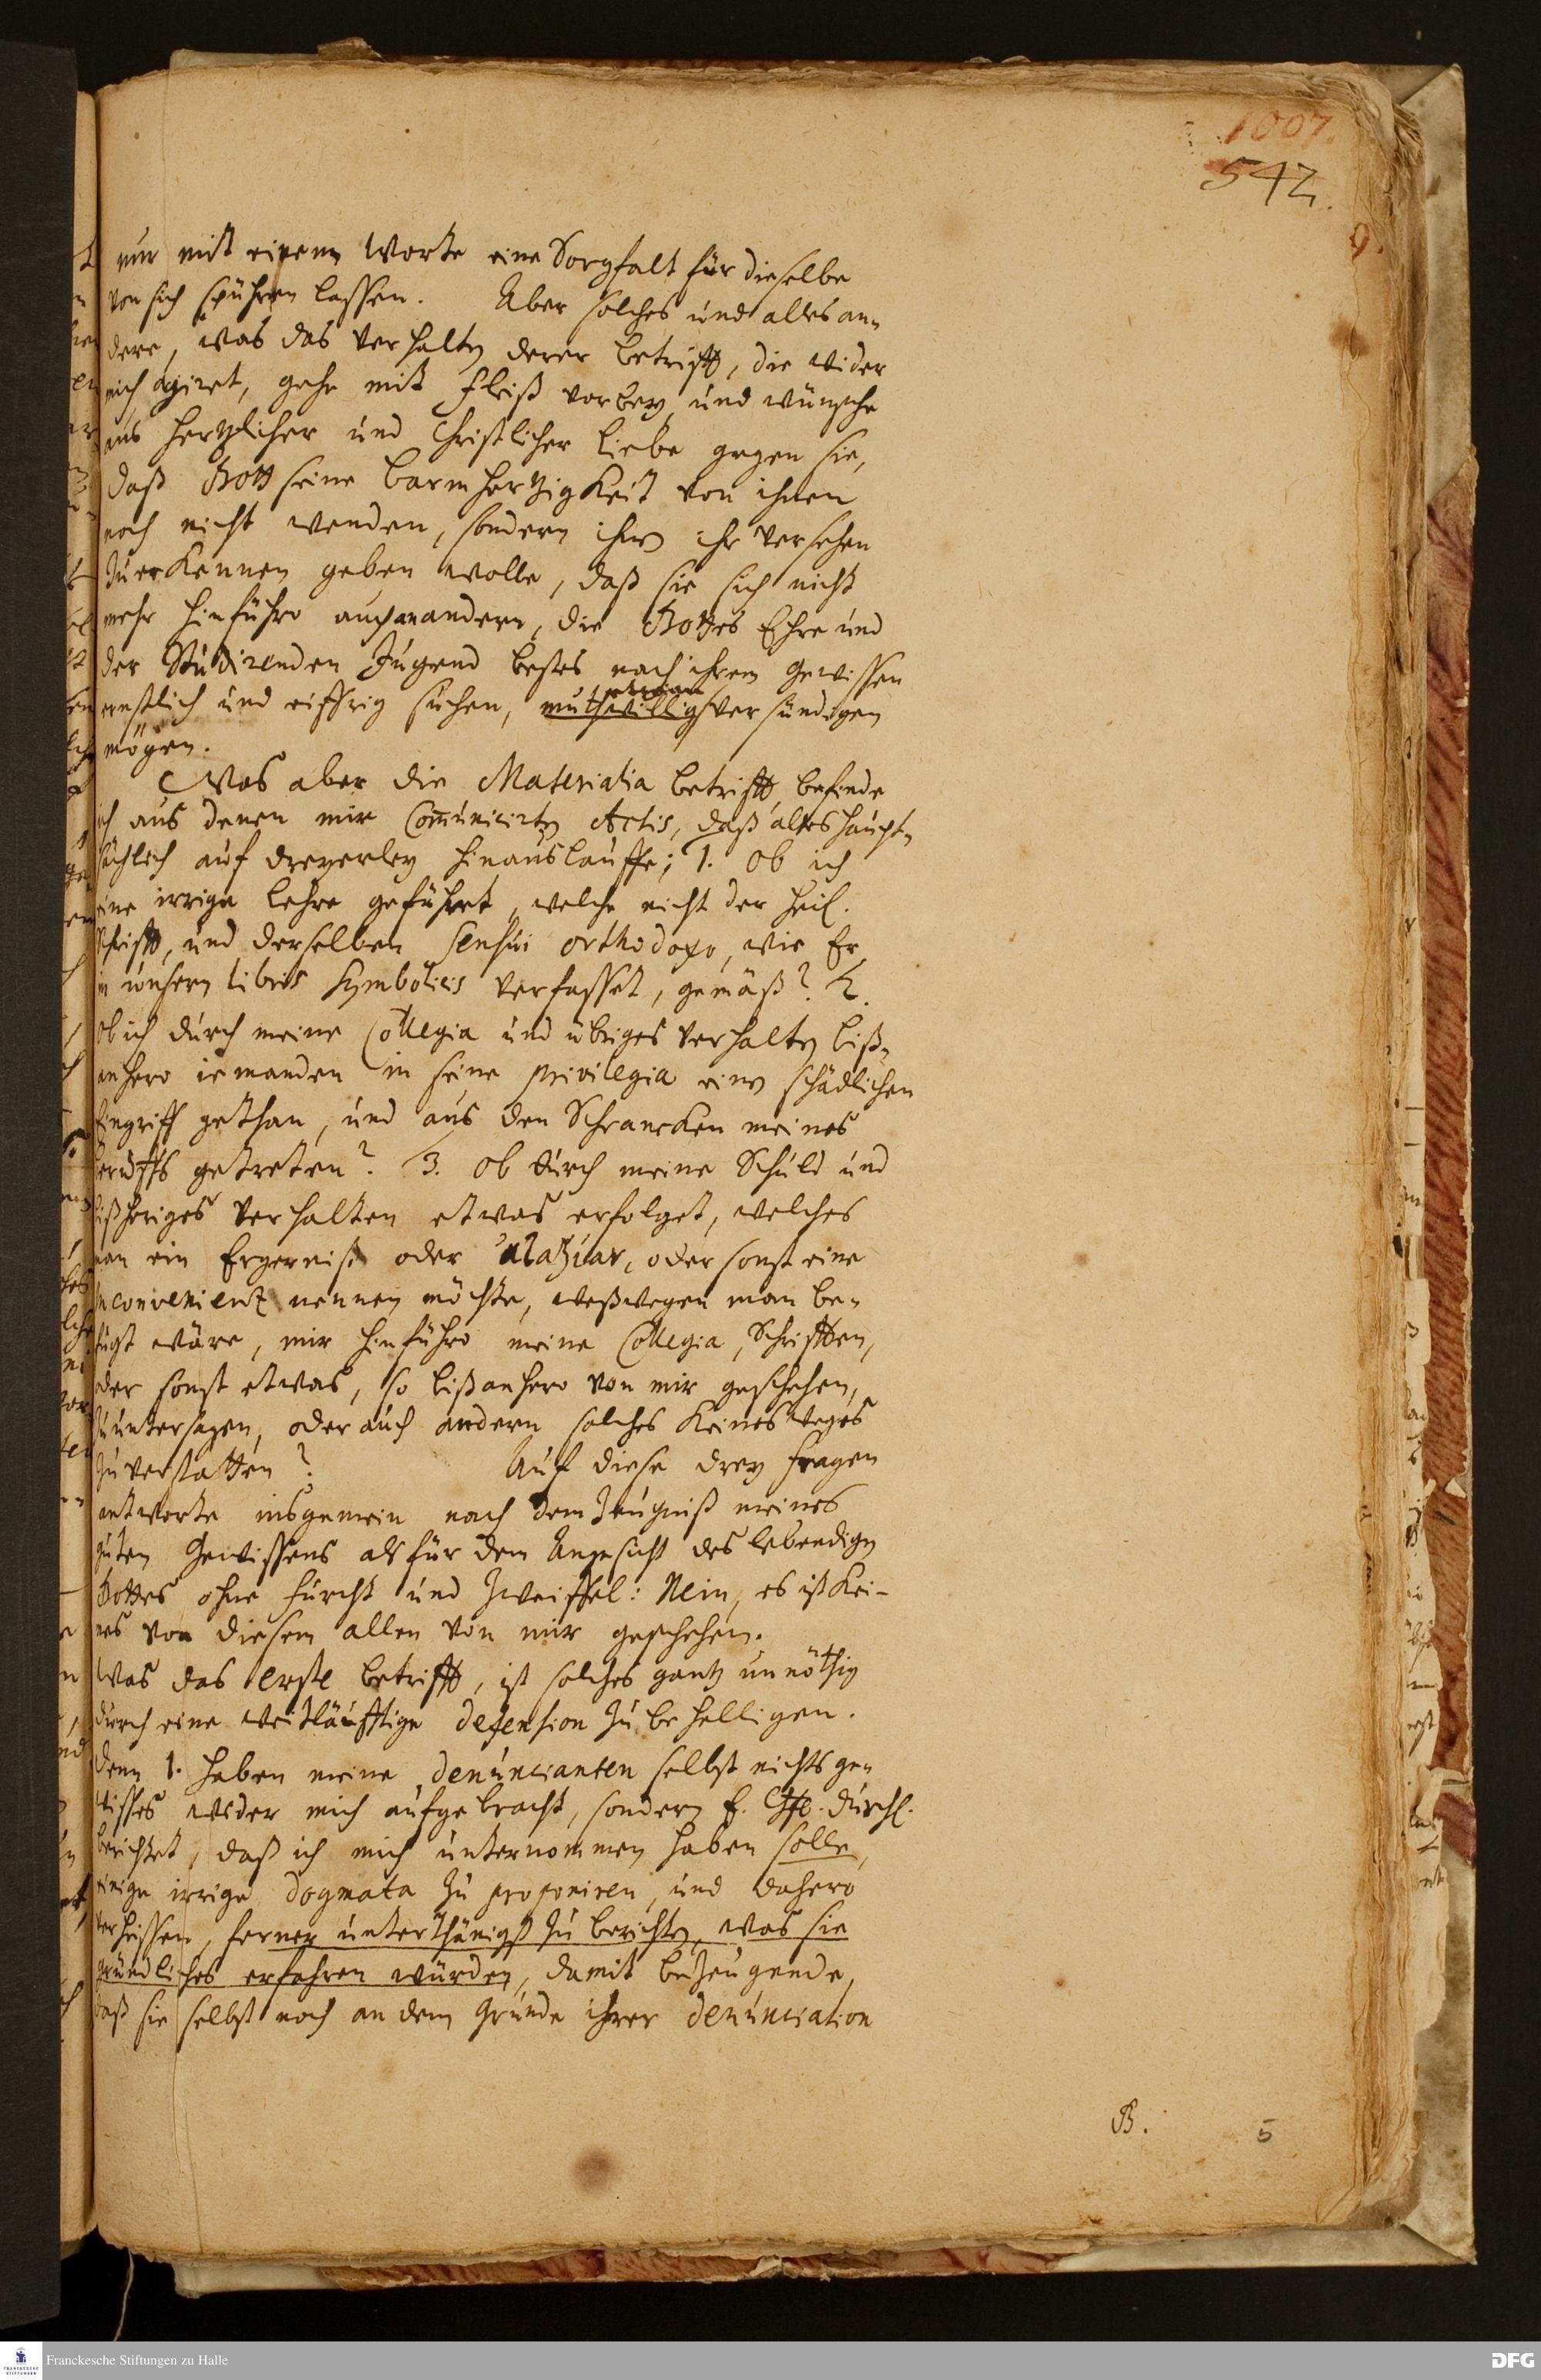 1007.
542.
9.
nur mit einem Worte eine Sorgfalt für dieselbe
von sich spühren lassen. Aber solches und alles an-
dere, was das Verhalten derer betrifft, die wider
mich agiret, gehe mit Fleiß vorbey, und wünsche
aus hertzlicher und Christlicher Liebe gegen sie,
daß Gott seine Barmhertzigkeit von ihnen
noch nicht wenden, sondern ihnen ihr Versehen
zuerkennen geben wolle, daß sie sich nicht
mehr hinführo an andern, die Gottes Ehre und
der Studirenden Jugend bestes nach ihrem Gewissen
ernstlich und eiffrig suchen, muthwillig versündigen
mögen.
Was aber die Materialia betrifft, befinde
ich aus denen mir Com̄unicirten Actis, daß alles haupt-
sächlich auf dreyerley hinauslauffe; 1. Ob ich
eine irrige Lehre geführet, welche nicht der Heil.
Schrifft, und derselben sensui orthodoxo, wie Er
in unsern Libris Symbolicis verfasset, gemäß? 2.
Ob ich durch meine Collegia und übriges Verhalten biß-
anhero iemanden in seine privilegia einen schädlichen
Eingriff gethan, und aus den Schrancken meines
Beruffs getreten? 3. Ob durch meine Schuld und
bißheriges Verhalten etwas erfolget, welches
man ein Ergerniß oder ἀταξίαν, oder sonst eine
inconvenientz nennen möchte, weßwegen man be-
fugt wäre, mir hinführo meine Collegia, Schrifften,
oder sonst etwas, so bißanhero von mir geschehen,
zu untersagen, oder auch andern solches keines weges
zu verstatten? Auf diese drey Fragen
antworte insgemein nach dem Zeugniß meines
guten Gewissens als für dem Angesicht des lebendigen
Gottes ohne Furcht und Zweiffel: Nein, es ist kei-
nes von diesem allen von mir geschehen.
Was das erste betrifft, ist solches gantz unnöthig
durch eine weitläufftige defension zu behelligen.
Denn 1. haben meine denuncianten selbst nichts ge-
wisses wider mich aufgebracht, sondern E. Chfl. Durchl.
berichtet, daß ich mich unternommen haben solle,
einige irrige Dogmata zu proponiren, und dahero
verheissen, ferner unterthänigst zu berichten, was sie
gründliches erfahren würden, damit bezeugende,
daß sie selbst noch an dem Grunde ihrer denunciation
B.
5
Franckesche Stiftungen zu Halle
DFG